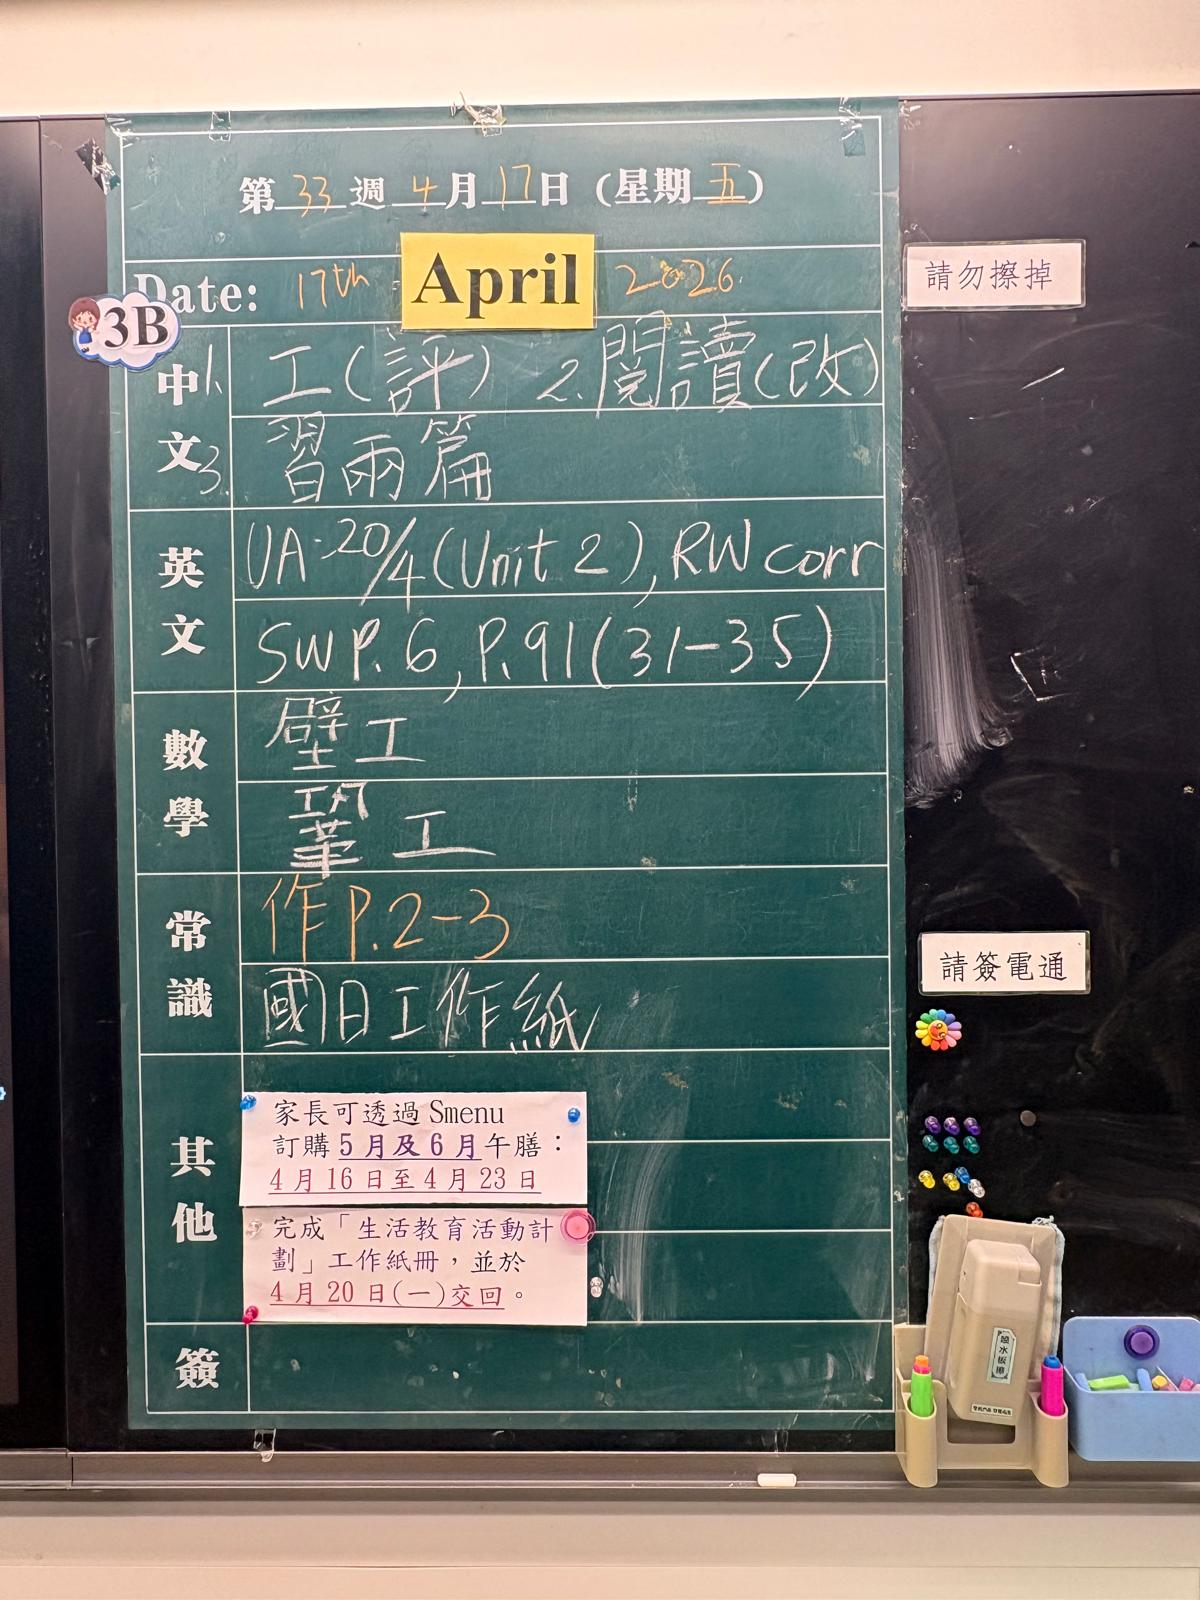 第33週4月17日(星期五)
Date: 17th April 2026
3B
請勿擦掉
中文
1. 工(評) 2. 閱讀(改)
3. 習兩篇
英文
UA-20/4(Unit 2), RW corr
SWP.6, P.91(31-35)
數學
壁工
工
常識
作P.2-3
國日工作紙
請簽電通
其他
家長可透過 Smenu
訂購5月及6月午膳：
4月16日至4月23日
完成「生活教育活動計
劃」工作紙冊，並於
4月20日(一)交回。
簽
吸水板擦